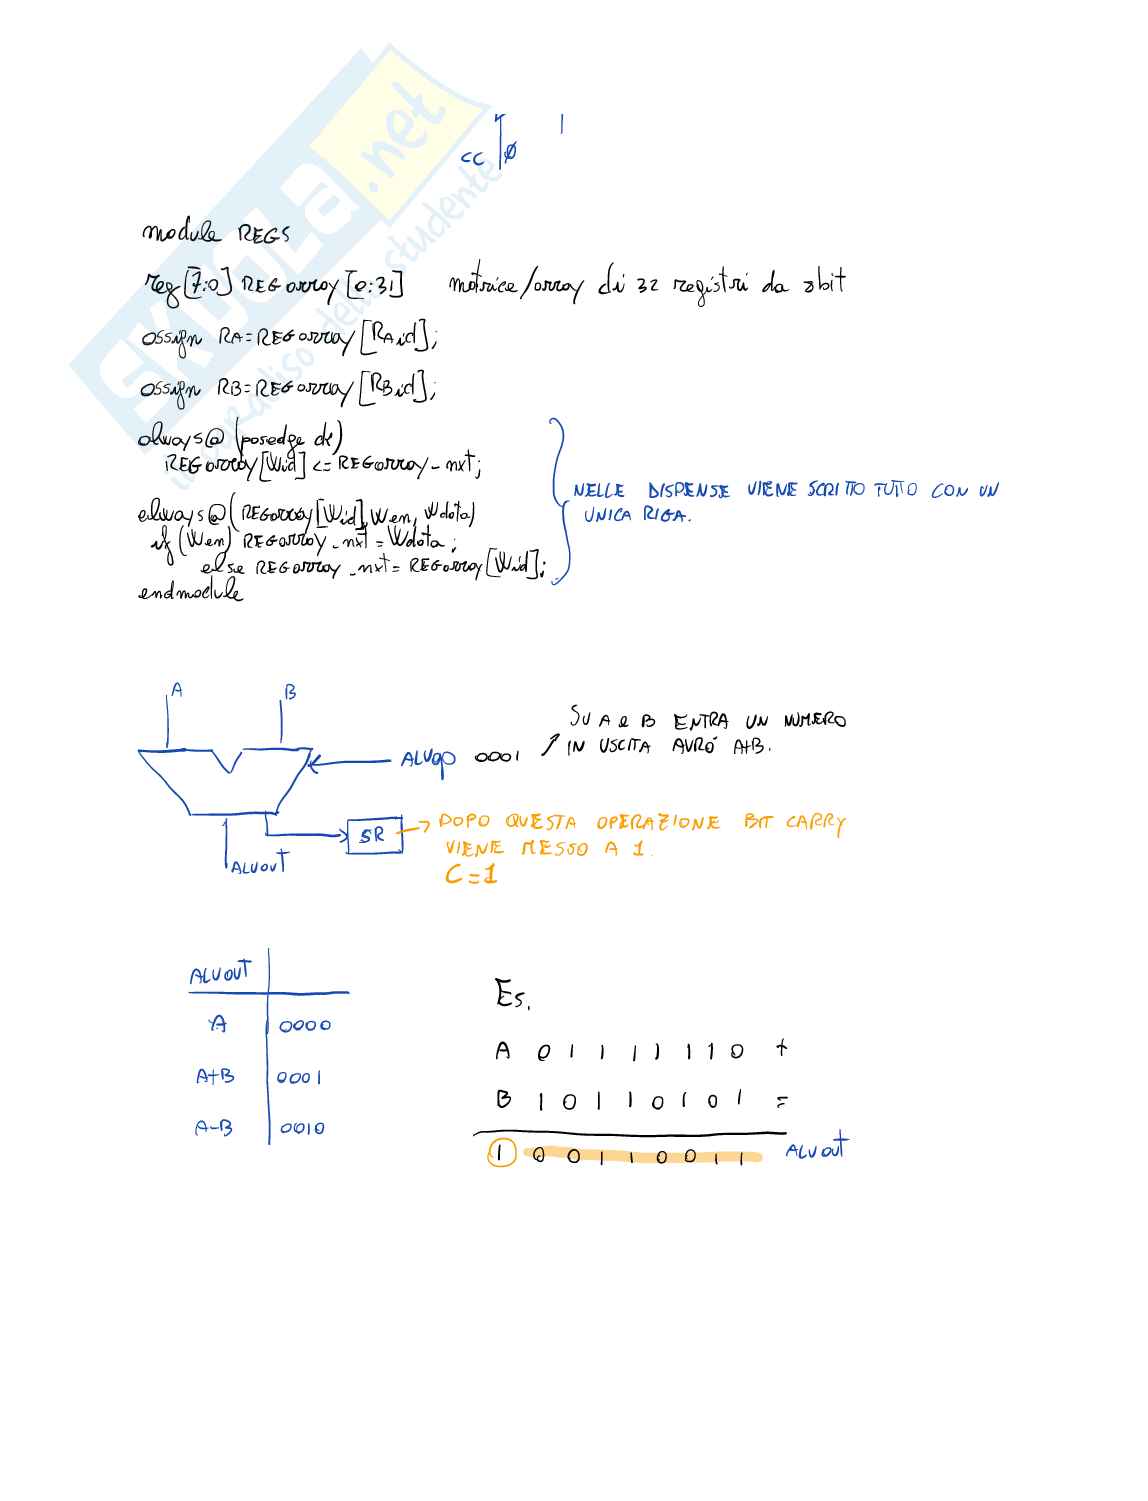 SKUOLA.net
il paradiso dello studente
CC 0 1
module REGS
reg [7:0] REGarray [0:31] matrice/array di 32 registri da 8bit
assign RA = REGarray [RAid];
assign RB = REGarray [RBid];
always@ (posedge ck)
REGarray [Wid] <= REGarray_nxt;
always@ (REGarray [Wid], Wen, Wdata)
if (Wen) REGarray_nxt = Wdata;
else REGarray_nxt = REGarray [Wid];
endmodule
NELLE DISPENSE VIENE SCRITTO TUTTO CON UN
UNICA RIGA.
A B
SU A e B ENTRA UN NUMERO
IN USCITA AVRÓ A+B.
ALUop 0001
SR
DOPO QUESTA OPERAZIONE BIT CARRY
VIENE MESSO A 1.
C=1
ALUOUT
ALUOUT
A 0000
A+B 0001
A-B 0010
Es.
A 0 1 1 1 1 1 1 0 +
B 1 0 1 1 0 1 0 1 =
1 0 0 1 1 0 0 1 1 ALUOUT